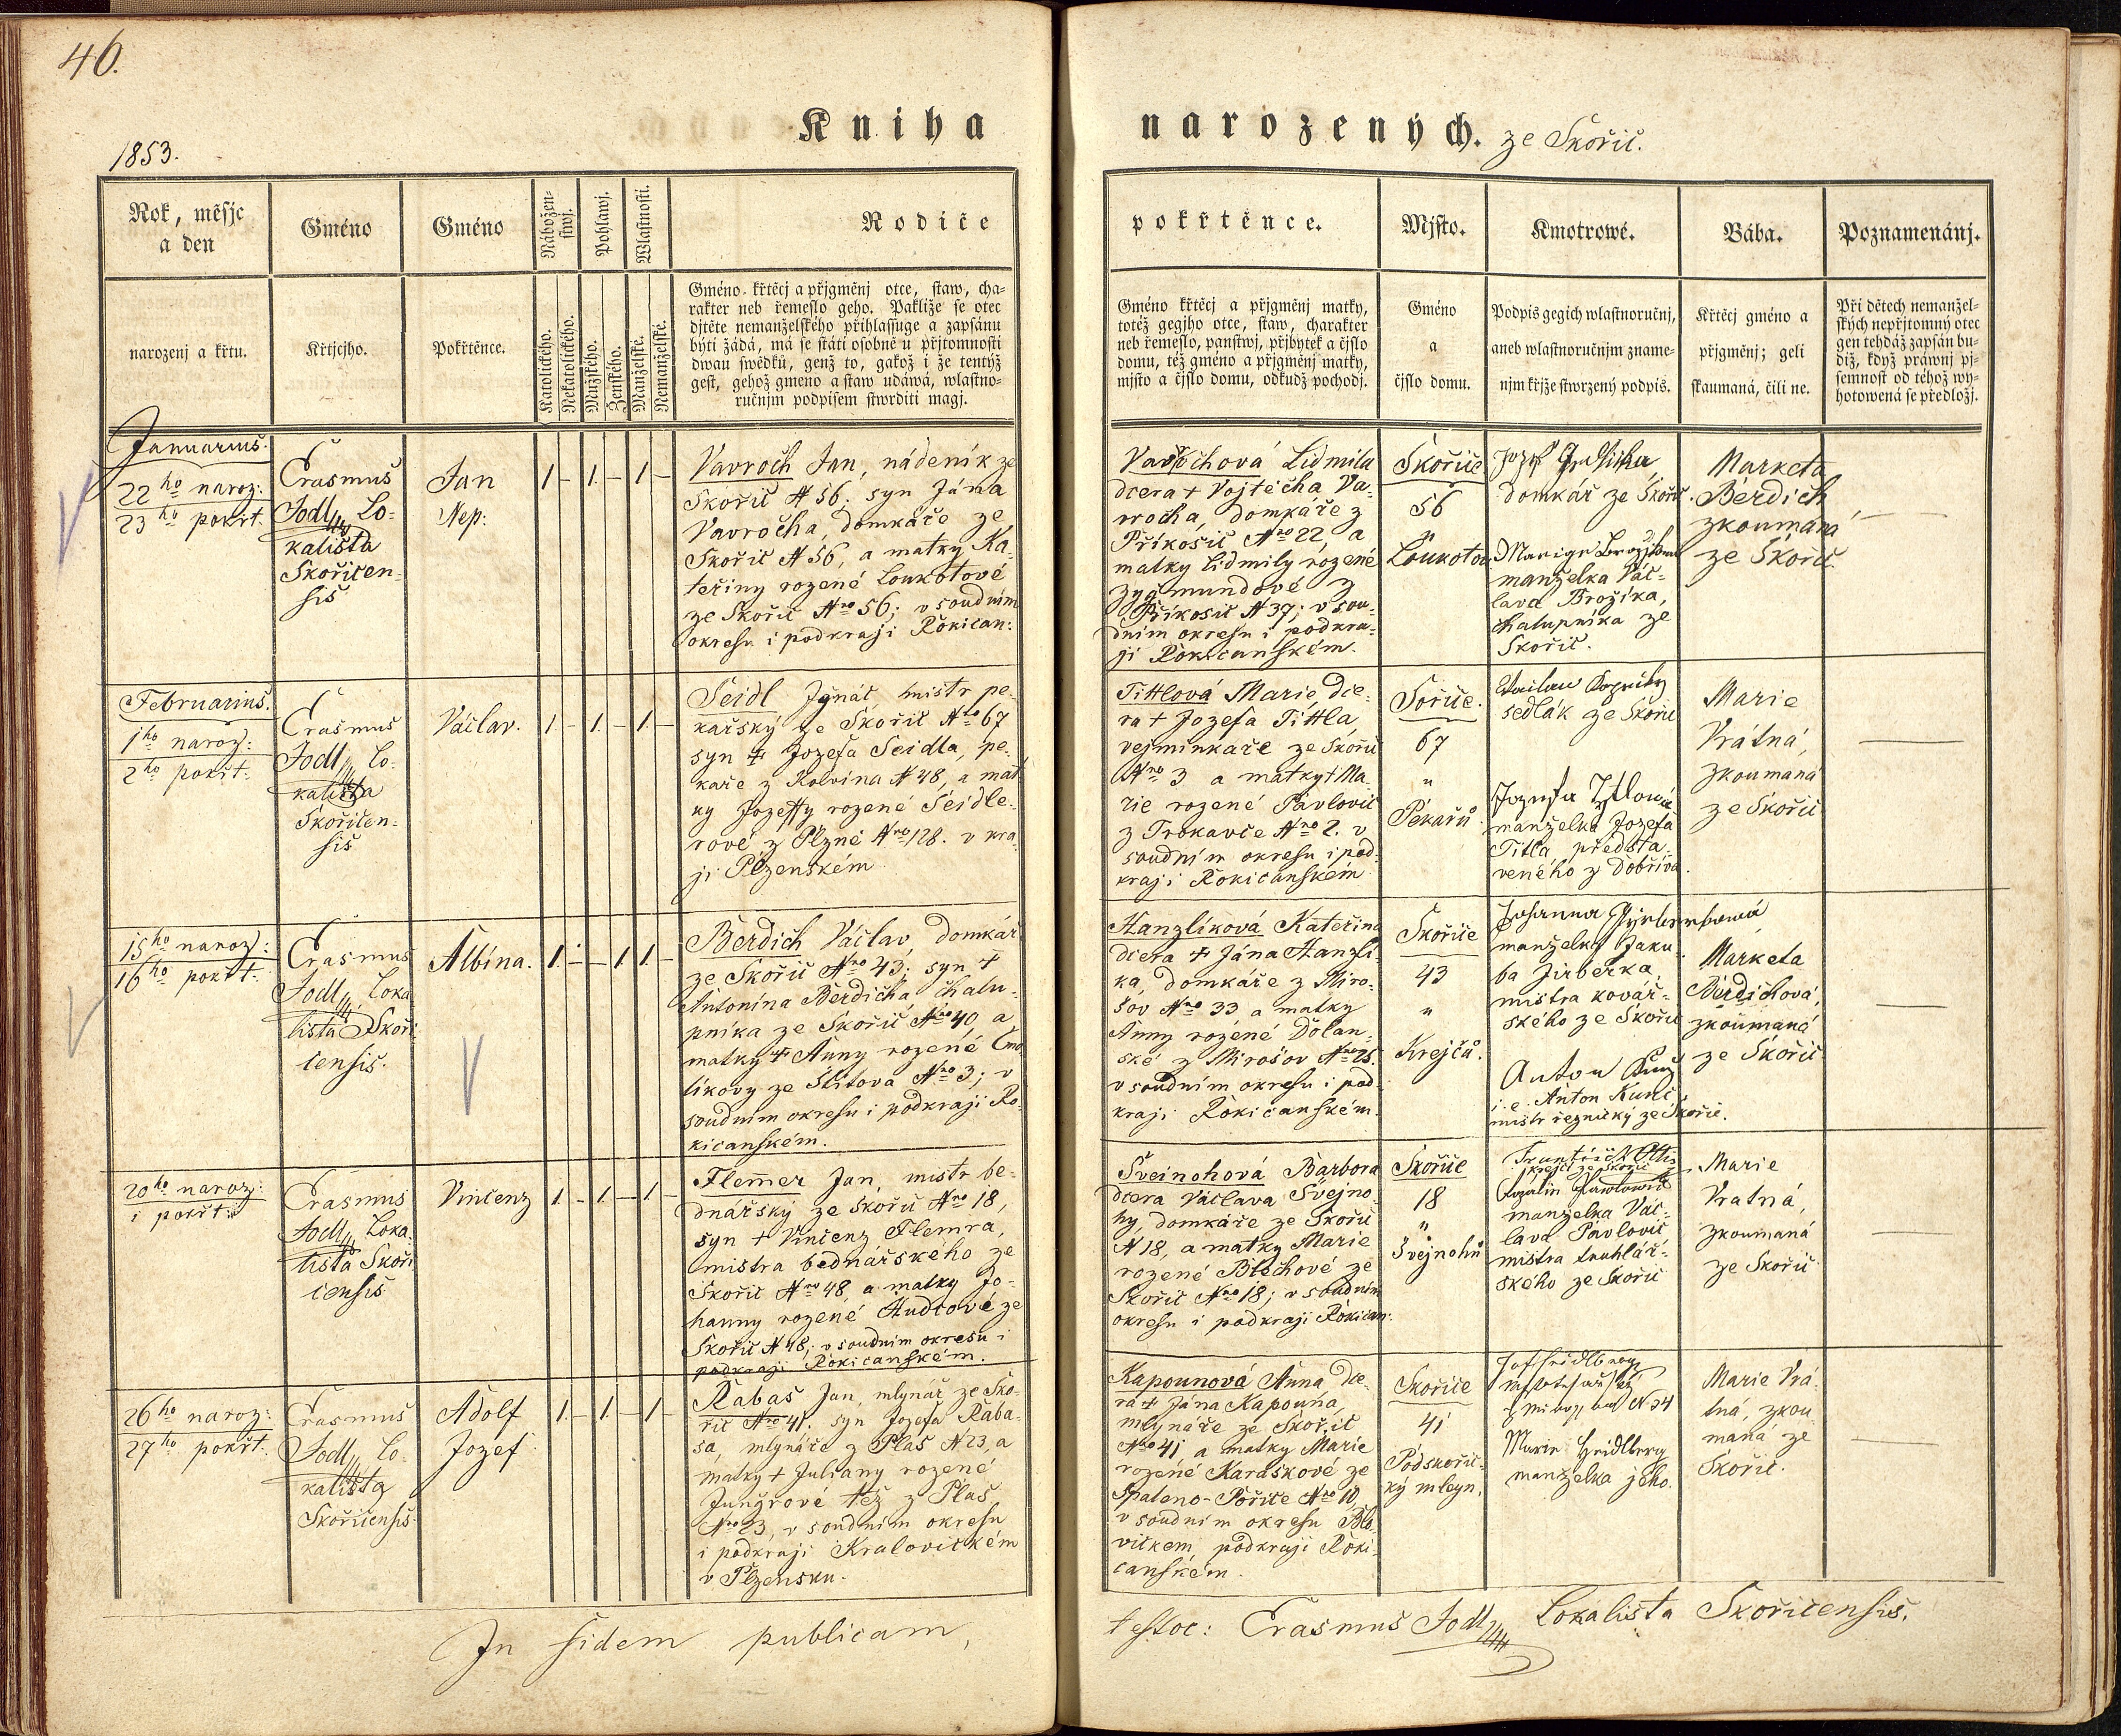 46.
Kniha
narozených. ze Skořič.
1853.
Rok, měsjc
a den
Gméno
Gméno
Nábožen=
stwj.
Pohlawj.
Wlastnosti.
Rodiče
pokřtěnce.
Mjsto.
Kmotrowé.
Bába.
Poznamenánj.
narozenj a křtu.
Křtjcjho.
Pokřtěnce.
Katolického.
Nekatolického.
Mužského.
Ženského.
Manželské.
Nemanželské.
Gméno křtěcj a přjgměnj otce, staw, cha=
rakter neb řemeslo geho. Pakliže se otec
djtěte nemanželského přihlassuge a zapsánu
býti žádá, má se státi osobně u přjtomnosti
dwau swědků, genž to, gakož i že tentýž
gest, gehož gmeno a staw udáwá, wlastno=
ručnjm podpisem stwrditi magj.
Gméno křtěcj a přjgmenj matky,
totéž gegjho otce, staw, charakter
neb řemeslo, panstwj, přjbytek a čjslo
domu, též gméno a přjgměnj matky,
mjsto a čjslo domu, odkudž pochodj.
Gméno
a
čjslo domu.
Podpis gegich wlastnoručnj,
aneb wlastnoručnjm zname=
njm křjže stwrzený podpis.
Křtěcj gméno a
přjgměnj; geli
skaumaná, čili ne.
Při dětech nemanžel=
ských nepřjtomný otec
gen tehdáž zapsán bu=
diž, když práwnj pj=
semnost od téhož wy=
hotowená se předložj.
Januarius.
22ho naroz:
23ho pokřt.
Erasmus
Jodl, Lo=
kalista
Skořicen=
sis
Jan
Nep:
1 – 1. – 1 –
Vavroch Jan, nádeník ze
Skořič N 56; syn Jána
Vavrocha, domkáře ze
Skořič N 56, a matky Ka=
teřiny rozené Loukotové
ze Skořič Nro 56; v soudním
okresu i podkraji Rokican:
Vavrochová Lidmila
dcera + Vojtěcha Va=
vrocha, domkáře z
Příkosic Nro 22, a
matky Lidmily rozené
Zygmundové z
Příkosic N 37; v sou=
dním okresu i podkra=
ji Rokicanském.
Skořice
56
"
Loukotou
Jozef
domkář ze Skořič.
manželka Vác=
lava Brožíka,
chalupníka ze
Skořič.
Marketa
Berdich
zkoumáná
ze Skořič.
Februarius.
1ho naroz:
2ho pokřt:
Erasmus
Jodl, Lo=
kalista
Skořicen=
sis
Václav.
1 – 1. – 1. –
Seidl Jgnác, mistr pe=
kařský ze Skořič Nro 67
syn + Jozefa Seidla, pe=
kaře z Kolvína N 48, a mat
ky Jozeffy rozené Seidle=
rové z Plzně Nro 128. v kra=
ji Plzenském
Tittlová Marie, dce=
ra + Jozefa Tittla,
vejminkaře ze Skořič
Nro 3 a matky + Ma=
rie rozené Pavlovic
z Trokavce Nro 2. v
soudním okresu i pod=
kraji Rokicanském
Sořice.
67
"
Pekařů.
sedlák ze Skořič
manželka Jozefa
Titla předsta=
veného z Dobříva.
Marie
Vrátná,
zkoumaná
ze Skořič
15ho naroz:
16ho pokřt.
Erasmus
Jodl, Loka
lista Skoři
censis.
Albína.
1. – – 1 1. –
Berdich Václav, domkář
ze Skořič Nro 43; syn +
Antonína Berdicha, chalu=
pníka ze Skořič Nro 40, a
matky + Anny rozené Cmo
líkovy ze Štítova Nro 3; v
soudním okresu i podkraji Ro
kicanském.
Hanzlíková Kateřina
dcera + Jána Hanzlí=
ka, domkáře z Miro=
šov Nro 33 a matky
Anny rozéné Dolan=
ské z Mirošov Nro 25.
v soudním okresu i pod
kraji Rokicanském.
Skořice
43
"
Krejčů.
manželka Jaku=
ba Jirberka,
mistra kovář=
ského ze Skořič
Anton Kunz
i. e. Anton Kunc
mistr řeznický ze Skořič.
Marketa
Berdichová,
zkoumaná
ze Skořič
20ho naroz:
i pokřt:
Erasmus
Jodl, Loka=
lista Skoři
censis
Vincenz
1. – 1. – 1 –
Flemer Jan, mistr be=
dnářský ze Skořič Nro 18,
syn + Vincenz Flemra,
mistra bednářského ze
Skořič Nro 48, a matky Jo=
hanny rozené Hudcové ze
Skořič N 48; v soudním okresu i
podkraji Rokicanském.
Švejnohová Barbora
dcera Václava Švejno=
hy, domkáře ze Skořič
N 18, a matky Marie
rozené Blechové ze
Skořič Nro 18; v soudním
okresu i podkraji Rokican:
Skořice
18
"
Švejnohů
krejčí ze Skořič
Rozalin Pawlowic
manželka Vác=
lava Pavlovic
mistra truhlář=
ského ze Skořič
Marie
Vratná,
zkoumaná
ze Skořič
26ho naroz:
27ho pokřt:
Erasmus
Jodl, Lo=
kalista
Skořicensis
Adolf
Jozef
1. – 1. – 1 –
Rabas Jan, mlynář ze Sko=
řič Nro 41. syn Jozefa Raba=
sa, mlynáře z Plas N 23, a
matky + Juliany rozené
Jungrové též z Plas
Nro 23, v soudním okresu
i podkraji Kralovickém
v Plzensku.
Kapounová Anna dce=
ra + Jána Kapouna,
mlynáře ze Skořič
Nro 41 a matky Marie
rozené Karáskové ze
Spaleno-Pořice Nro 10,
v soudním okresu Blo
vickem podkraji Roki=
canském.
Skořice
41
Podskořic=
ký mleyn.
N 34
Marie Heidlberg
manželka jeho.
Marie Vrá=
tná, zkou
maná ze
Skořič.
In fidem publicam,
testor: Erasmus Jodl, Lokalista Skořicensis.